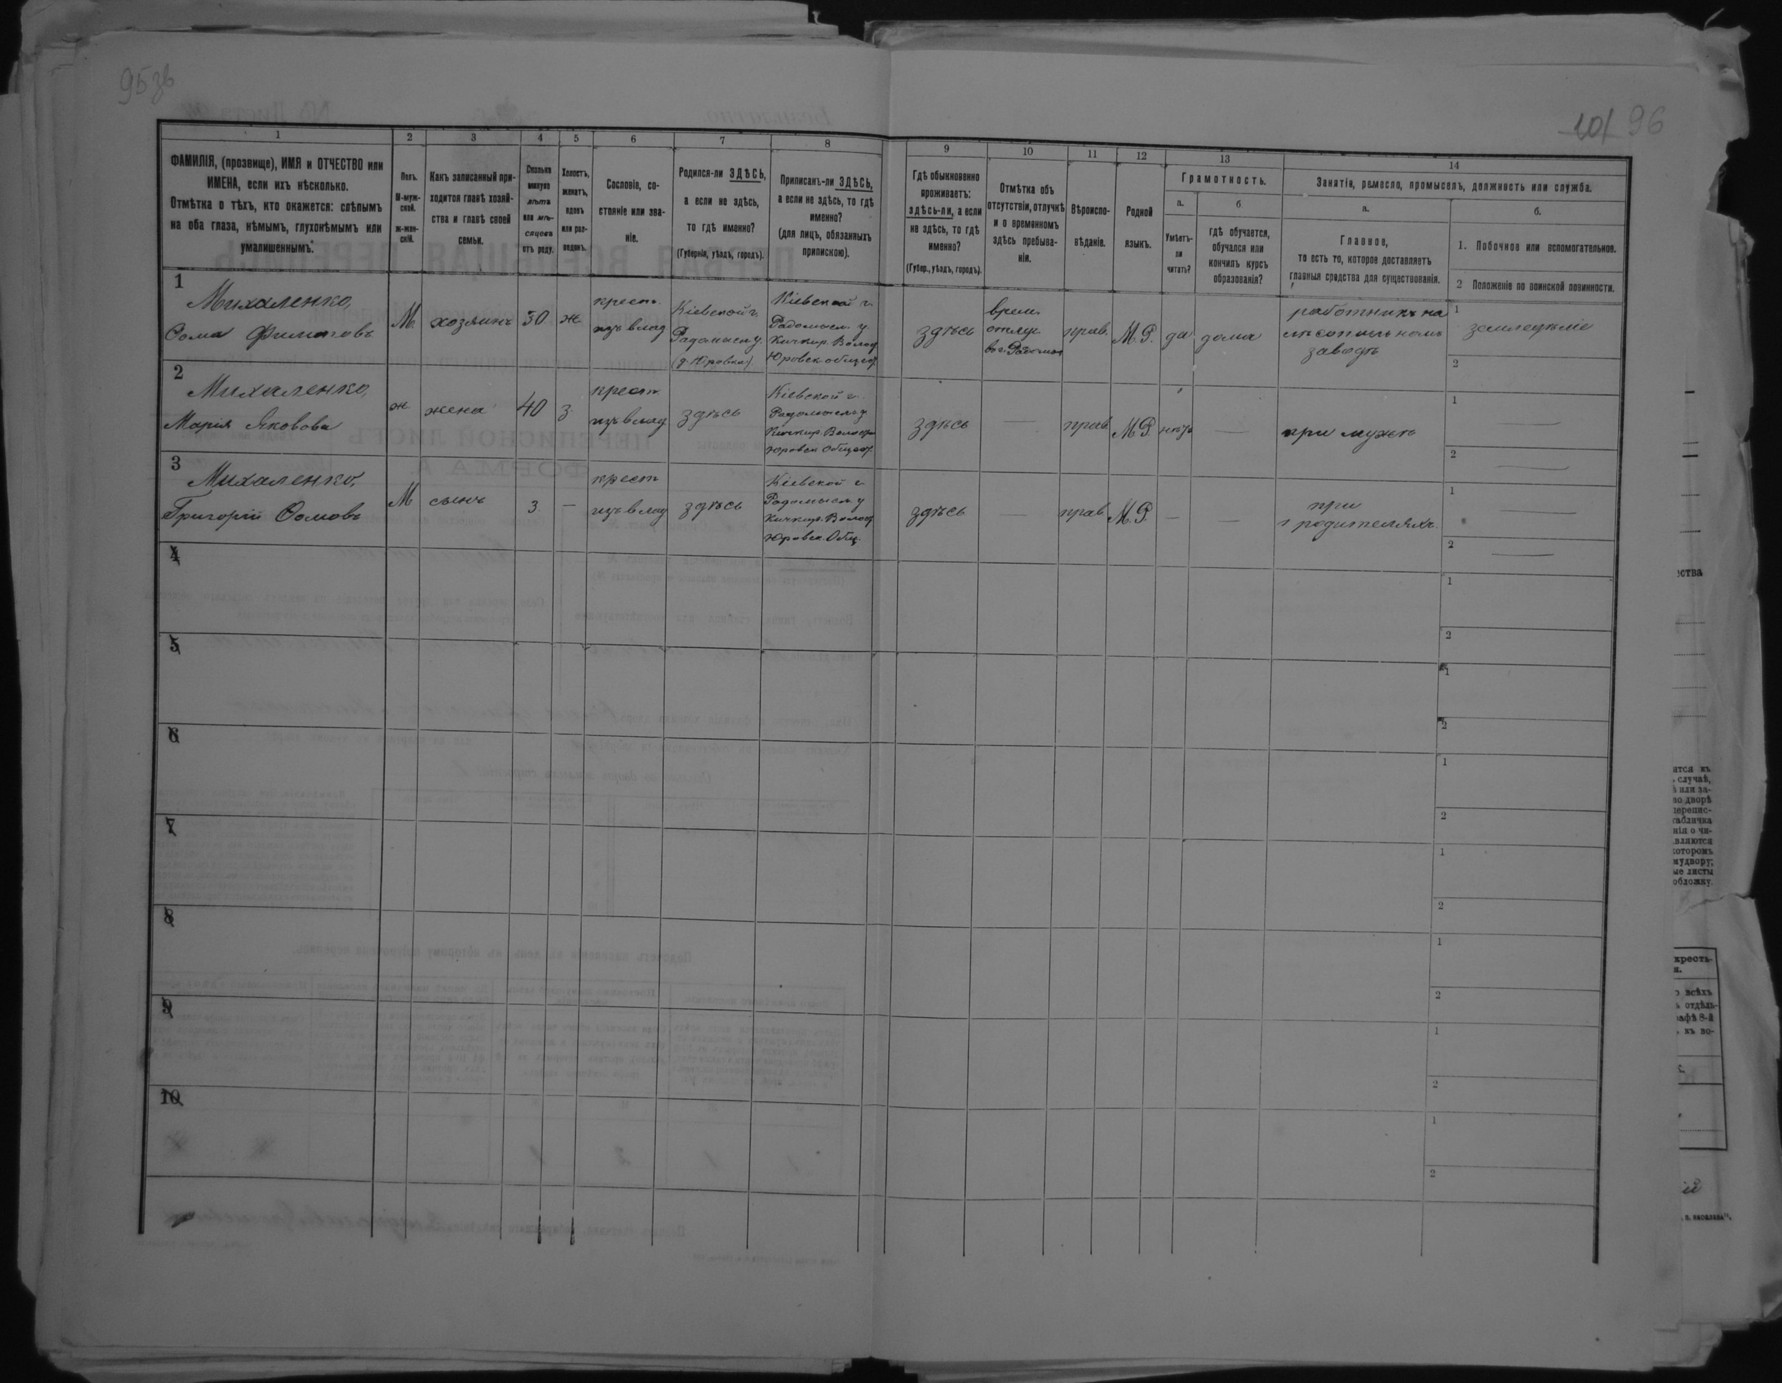 95зв
101 96
1 2 3 4 5 6 7 8 9 10 11 12 13 14
ФАМИЛІЯ, (прозвище), ИМЯ и ОТЧЕСТВО или
ИМЕНА, если ихъ нѣсколько.
Отмѣтка о тѣхъ, кто окажется: слѣпымъ
на оба глаза, нѣмымъ, глухонѣмымъ или
умалишеннымъ.
Полъ.
М-муж-
ской.
ж-жен-
скій.
Какъ записанный при-
ходится главѣ хозяй-
ства и главѣ своей
семьи.
Сколько
минуло
лѣтъ
или мѣ-
сяцевъ
отъ роду.
Холостъ,
женатъ,
вдовъ
или раз-
веденъ.
Сословіе, со-
стояніе или зва-
ніе.
Родился-ли ЗДѢСЬ,
а если не здѣсь,
то гдѣ именно?
(Губернія, уѣздъ, городъ).
Приписанъ-ли ЗДѢСЬ,
а если не здѣсь, то гдѣ
именно?
(для лицъ, обязанныхъ
припискою).
Гдѣ обыкновенно
проживаетъ:
здѣсь-ли, а если
не здѣсь, то гдѣ
именно?
(Губер., уѣздъ, городъ).
Отмѣтка объ
отсутствіи, отлучкѣ
и о временномъ
здѣсь пребыва-
ніи.
Вѣроиспо-
вѣданіе.
Родной
языкъ.
Грамотность.
а.
Умѣетъ-
ли
читать?
б
гдѣ обучается,
обучался или
кончилъ курсъ
образованія?
Занятіе, ремесло, промыселъ, должность или служба.
а.
Главное,
то есть то, которое доставляетъ
главныя средства для существованія.
б.
1. Побочное или вспомогательное.
2 Положеніе по воинской повинности.
1
Михаленко,
Ѳома Филиповъ
М
хозяинъ
30
ж
крест.
изъ влад
Кіевской г.
Радомысл у.
(д. Юровка)
Кіевской г.
Радомысл. у
Кичкир. Волос
Юровск общест
здѣсь
врем.
отлуч.
прав.
М.Р.
да
дома
работникъ на
лѣсопильномъ
заводѣ
1 земледѣліе
2
2
Михаленко,
Марія Яковова
ж
жена
40
з.
крест
изъ влад
здѣсь
Кіевской г.
Радомысл у
Кичкир. Волости
Юровск Общест.
здѣсь
—
прав
М.Р.
нѣтъ
—
при мужѣ
1 —
2 —
3
Михаленко,
Григорій Ѳомовъ
М
сынъ
3
—
крест
изъ влад
здѣсь
Кіевской г
Радомысл у
Кичкир. Волост
Юровск. Общ.
здѣсь
—
прав.
М.Р.
—
—
при
родителяхъ.
1 —
2 —
4
1
2
5
1
2
6
1
2
7
1
2
8
1
2
9
1
2
10
1
2